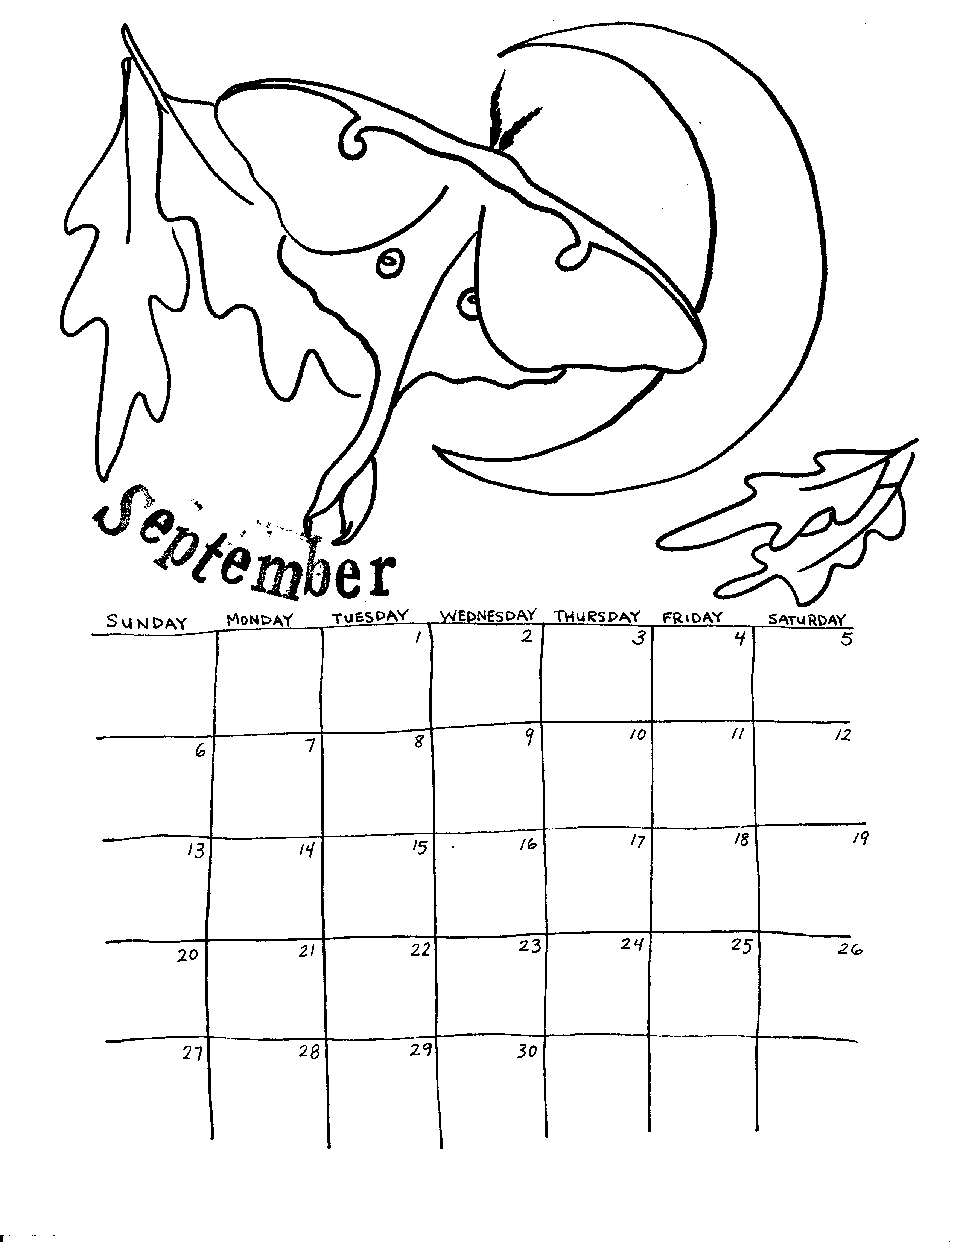 September
SUNDAY MONDAY TUESDAY WEDNESDAY THURSDAY FRIDAY SATURDAY
1 2 3 4 5
6 7 8 9 10 11 12
13 14 15 16 17 18 19
20 21 22 23 24 25 26
27 28 29 30